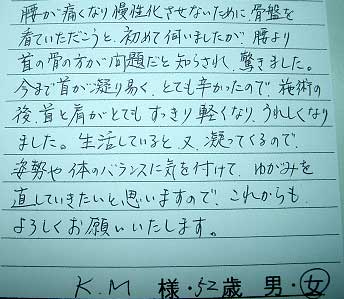 腰が痛くなり慢性化させないために、骨盤を
看ていただこうと、初めて伺いましたが、腰より
首の骨の方が問題だと知らされ、驚きました。
今まで首が凝り易く、とても辛かったので、施術の
後、首と肩がとてもすっきり軽くなり、うれしくなり
ました。生活していると、又、凝ってくるので、
姿勢や体のバランスに気を付けて、ゆがみを
直していきたいと、思いますので、これからも、
よろしくお願いいたします。
K.M 様・52歳 男・女